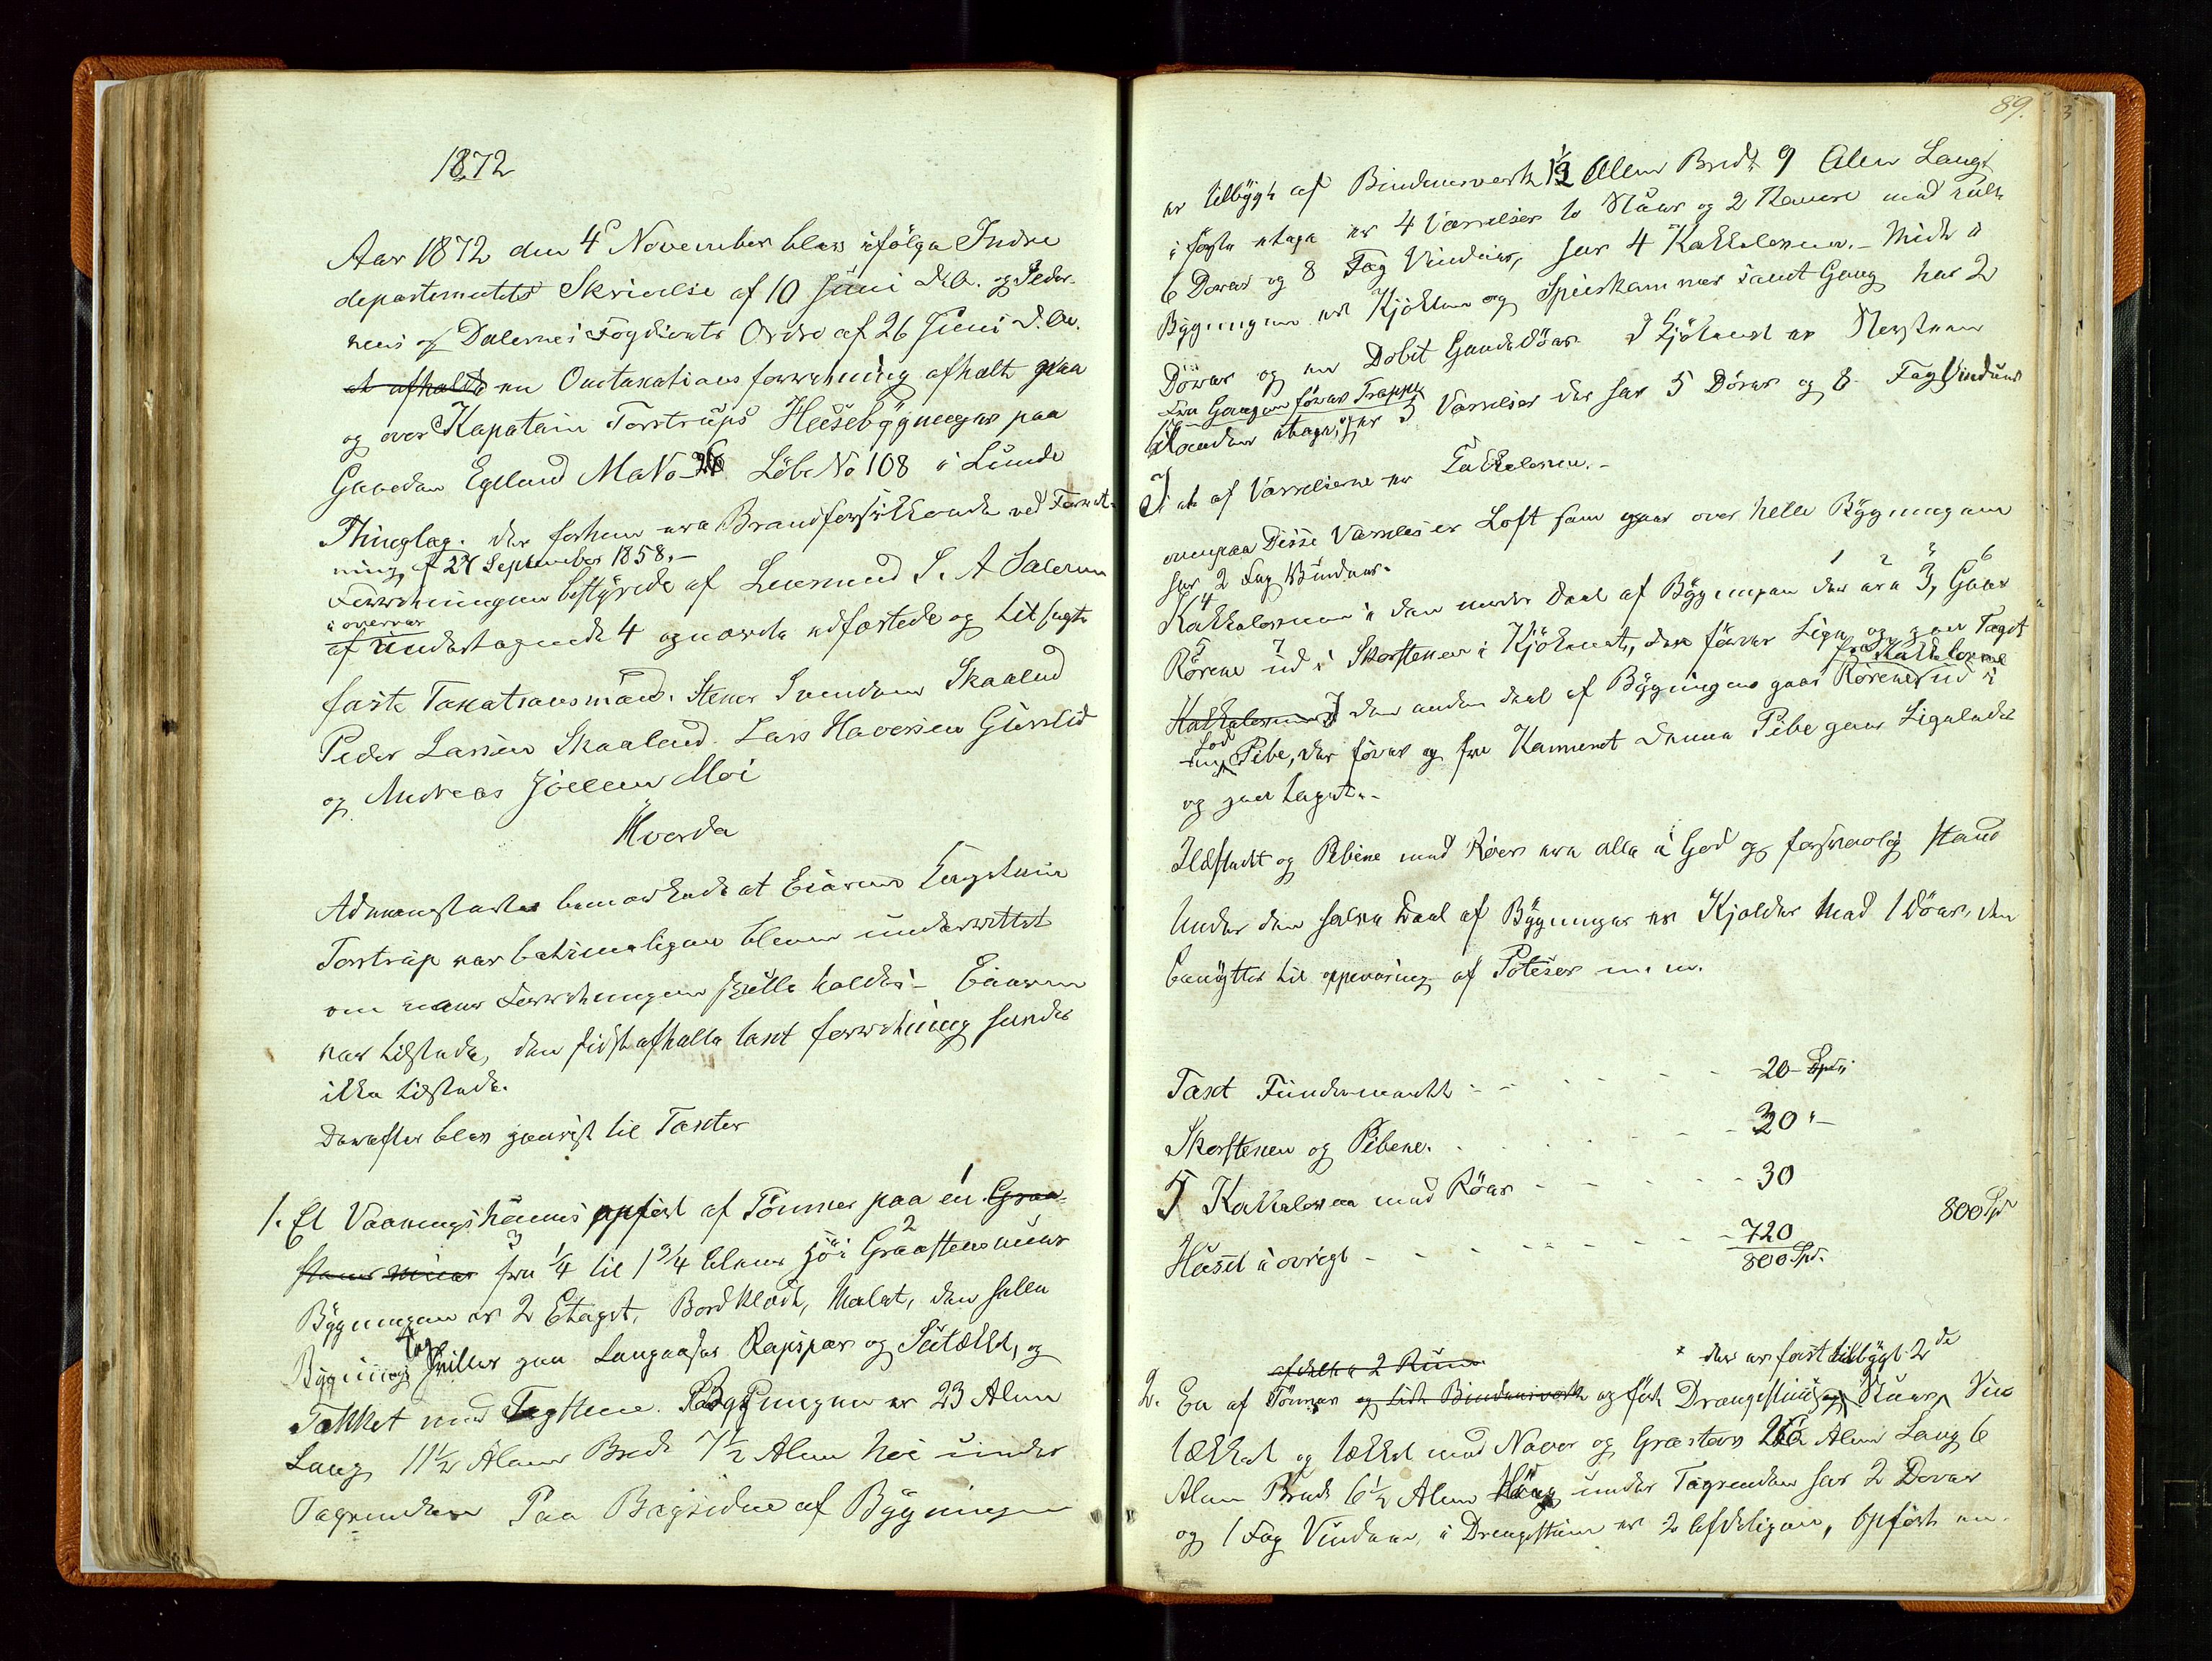 1872
Aar 1872 den 4 November blev ifölge Indre
departementets Skrivelse af 10 Juni d.A. og Jeder-
rens og Dalernes Fogderiets Ordre af 26 Juni d.A.
at afholde en Omtaxationsforretning afholt paa
og over Kapatain Torstrups Huusebygninger paa
Gaarden Egeland MaNo 26 Löbe No 108 i Lunde
Thinglag. der forhen ere Brandforsikkrede ved Forret-
ning af 27 September 1858.-
Forretningen bestyrede af Lensmand S. A Salemon
i overvær
af undertegnede 4 opnævnte edfæstede og tilsagte
faste Taxationsmænd. Stener Svendsen Skaaland
Peder Larsen Skaaland. Lars Haversen Gurslid
og Andreas Joelsen Moi
Hvorda
Administrator bemærkede at Eieren Kapatain
Torstrup var betimeligen bleven underrettet
om naar Forretningen skulle holdes - Eieren
var tilstede, den sidst afholte taxt forretning fandtes
ikke tilstede.
Derefter blev gaaet til Taxter
1. Et Vaaningshuus opført af Tømmer paa en Graa-
steens muur fra 1/4 til 1 3/4 Alens høi Graasteensmuur
Bygningen er 2 Etaget, Bordklædt, Malet, den halve
Bygnings Tag hviler paa Langaaser Rapspær og Sutækket, og
Tækket med Tagsteen. Bygningen er 23 Alen
Lang 11½ Alens Bred 7½ Alen høi under
Tagrenden Paa Bagsiden af Bygningen
89.
er tilbygt af Bindingsverk 1½ Alen Bredt 9 Alen Langt
i første etage er 4 Værelser to Stuer og 2 Kamere med
6 Dørrer og 8 Fag Vinduer, har 4 Kakkelovne. - Midt i
Bygningen er Kjökken og Spiiskammer samt Gang har 2
Dörrer og en Dobet Gandedör. I Kjökenet er Skorsten
Fra Gangen förer Trappe
til anden etage, der er 5 Værelser der har 5 Dörrer og 8 Fag Vinduer
I et af Værelserne er Kakkelovn. -
ovenpaa Disse Værelser er Loft som gaar over hele Bygningen
har 2 Fag Vinduer.
Kakkelovnene i den nedre Deel af Bygningen der ere 3, Gaar
Rörene ud i Skorstenen i Kjökenet, den förer Lige op gjen Taget
fra Kakkelovnene
Kakkelovnene I den anden deel af Bygningen gaar Rörene ud i
en lod Pibe, der förer op fra Kammeret denne Pibe gaar Ligeledes
op gjen taget. -
Ildstedt og Piberne med Röer ere alle i God og forsvarlig stand
Under den halve Deel af Bygningen er Kjelder Med 1 Döer, den
benyttes til oppevaring af Poteter m. m.
Taxt Fundamentet - - - 20 Spd
Skorstenen og Piberne. - - - 30 "
5 Kakkelovne med Röer - - - 30
Huset i ovrigt - - - 720
800 Spd.
800 Spd
afdelt i 2 Rum * der er fast tilbygt 2de
2. En af Tömmer og lidt Bindingsverk opført Drengestue og Skuer,
tækket og tækket med Næver og Græstorv 26 Alen Lang 6
Alen Bred 6½ Alen Höy under Tagrenden har 2 Dorer
og 1 Fag Vinduer, i Drengestuen er 2 Afdelinger, Opført en